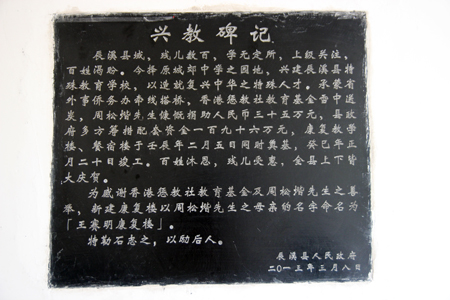 兴教碑记
辰溪县城，残儿数百，学无定所，上级关注，
百姓渴盼。今择原城郊中学之园地，兴建辰溪县特
殊教育学校，以造就复兴中华之特殊人才。承蒙省
外事侨务办牵线搭桥，香港惩教社教育基金雪中送
炭，周松堦先生慷慨捐助人民币三十五万元，县政
府多方筹措配套资金一百九十六万元，康复教学
楼、餐宿楼于壬辰年二月五日同时奠基，癸巳年正
月二十日竣工。百姓沐恩，残儿受惠，全县上下皆
大庆贺。
为感谢香港惩教社教育基金及周松堦先生之善
举，新建康复楼以周松堦先生之母亲的名字命名为
「王赛明康复楼」。
特勒石志之，以励后人。
辰溪县人民政府
二〇一三年三月八日